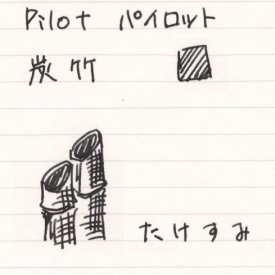 Pilot パイロット
炭竹
たけすみ